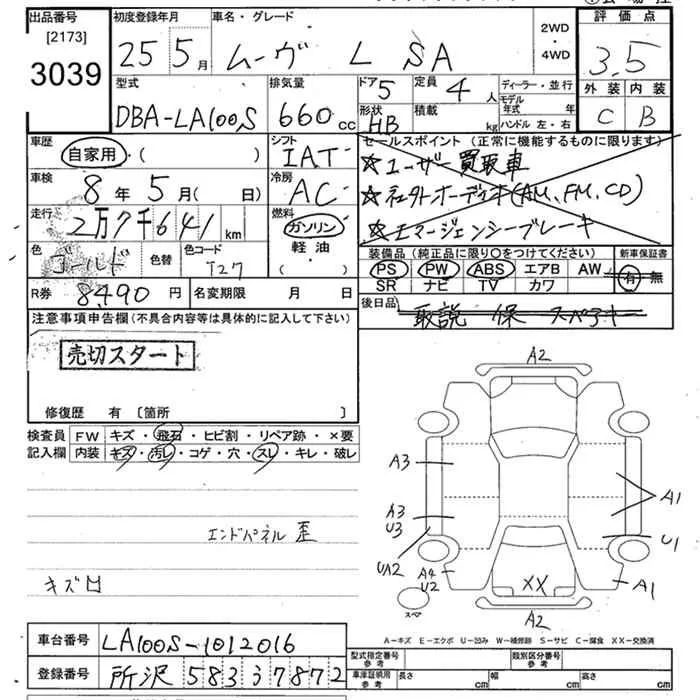 出品番号 初度登録年月 車名・グレード 評価点
[2173]
3039
25 5月 ムーヴ L SA 2WD・4WD 3.5
型式 排気量 ドア 5 定員 4人 ディーラー・並行 外装 内装
DBA-LA100S 660cc 形状 HB 積載 kg モデル年式 年 ハンドル 左・右 C B
車歴 自家用・( ) シフト IAT セールスポイント(正常に機能するものに限ります)
☆ユーザー買取車
車検 8年 5月( 日) 冷房 AC ☆社外オーディオ(AM、FM、CD)
走行 2万7千641km 燃料 ガソリン・軽油・( ) ☆エマージェンシーブレーキ
色 ゴールド 色替 色コード T27 装備品(純正品に限り○をつけてください) 新車保証書
PS PW ABS エアB AW 有・無
SR ナビ TV カワ
R券 8490円 名変期限 月 日 後日品 取説 保 スペアキー
注意事項申告欄(不具合内容等は具体的に記入して下さい)
売切スタート
修復歴 有 [箇所 ]
検査員 FW キズ・飛石・ヒビ割・リペア跡・×要
記入欄 内装 キズ・汚レ・コゲ・穴・スレ・キレ・破レ
エンドパネル 歪
キズ凹
A2
A3
A3
U3
UA2
A4
U2
XX
A1
U1
A1
A2
スペア
A-キズ E-エクボ U-凹み W-補修跡 S-サビ C-腐食 XX-交換済
車台番号 LA100S-1012016 型式指定番号 参考 類別区分番号 参考
登録番号 所沢 583 3 7872 車庫証明用 参考 長さ cm 幅 cm 高さ cm